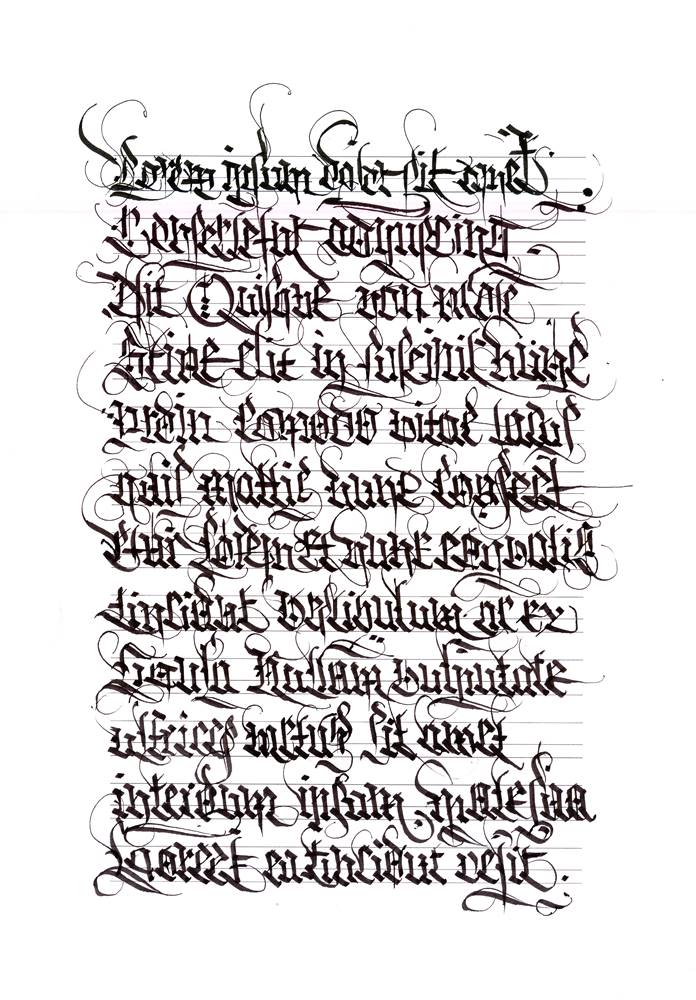 Lorem ipsum dolor sit amet.
Consectetur adipiscing.
Elit Quisque non mole
Stine elit in suscipit nunc
Proin Comodo vitae lacus
quis mattis nunc Consect
etur Lorem Et nunc convallis
tincidunt Vestibulum ac ex
ligula Nullam vulputate
ultrices metus sit amet
interdum ipsum malesuaa
Laoreet eu tincidunt velit.